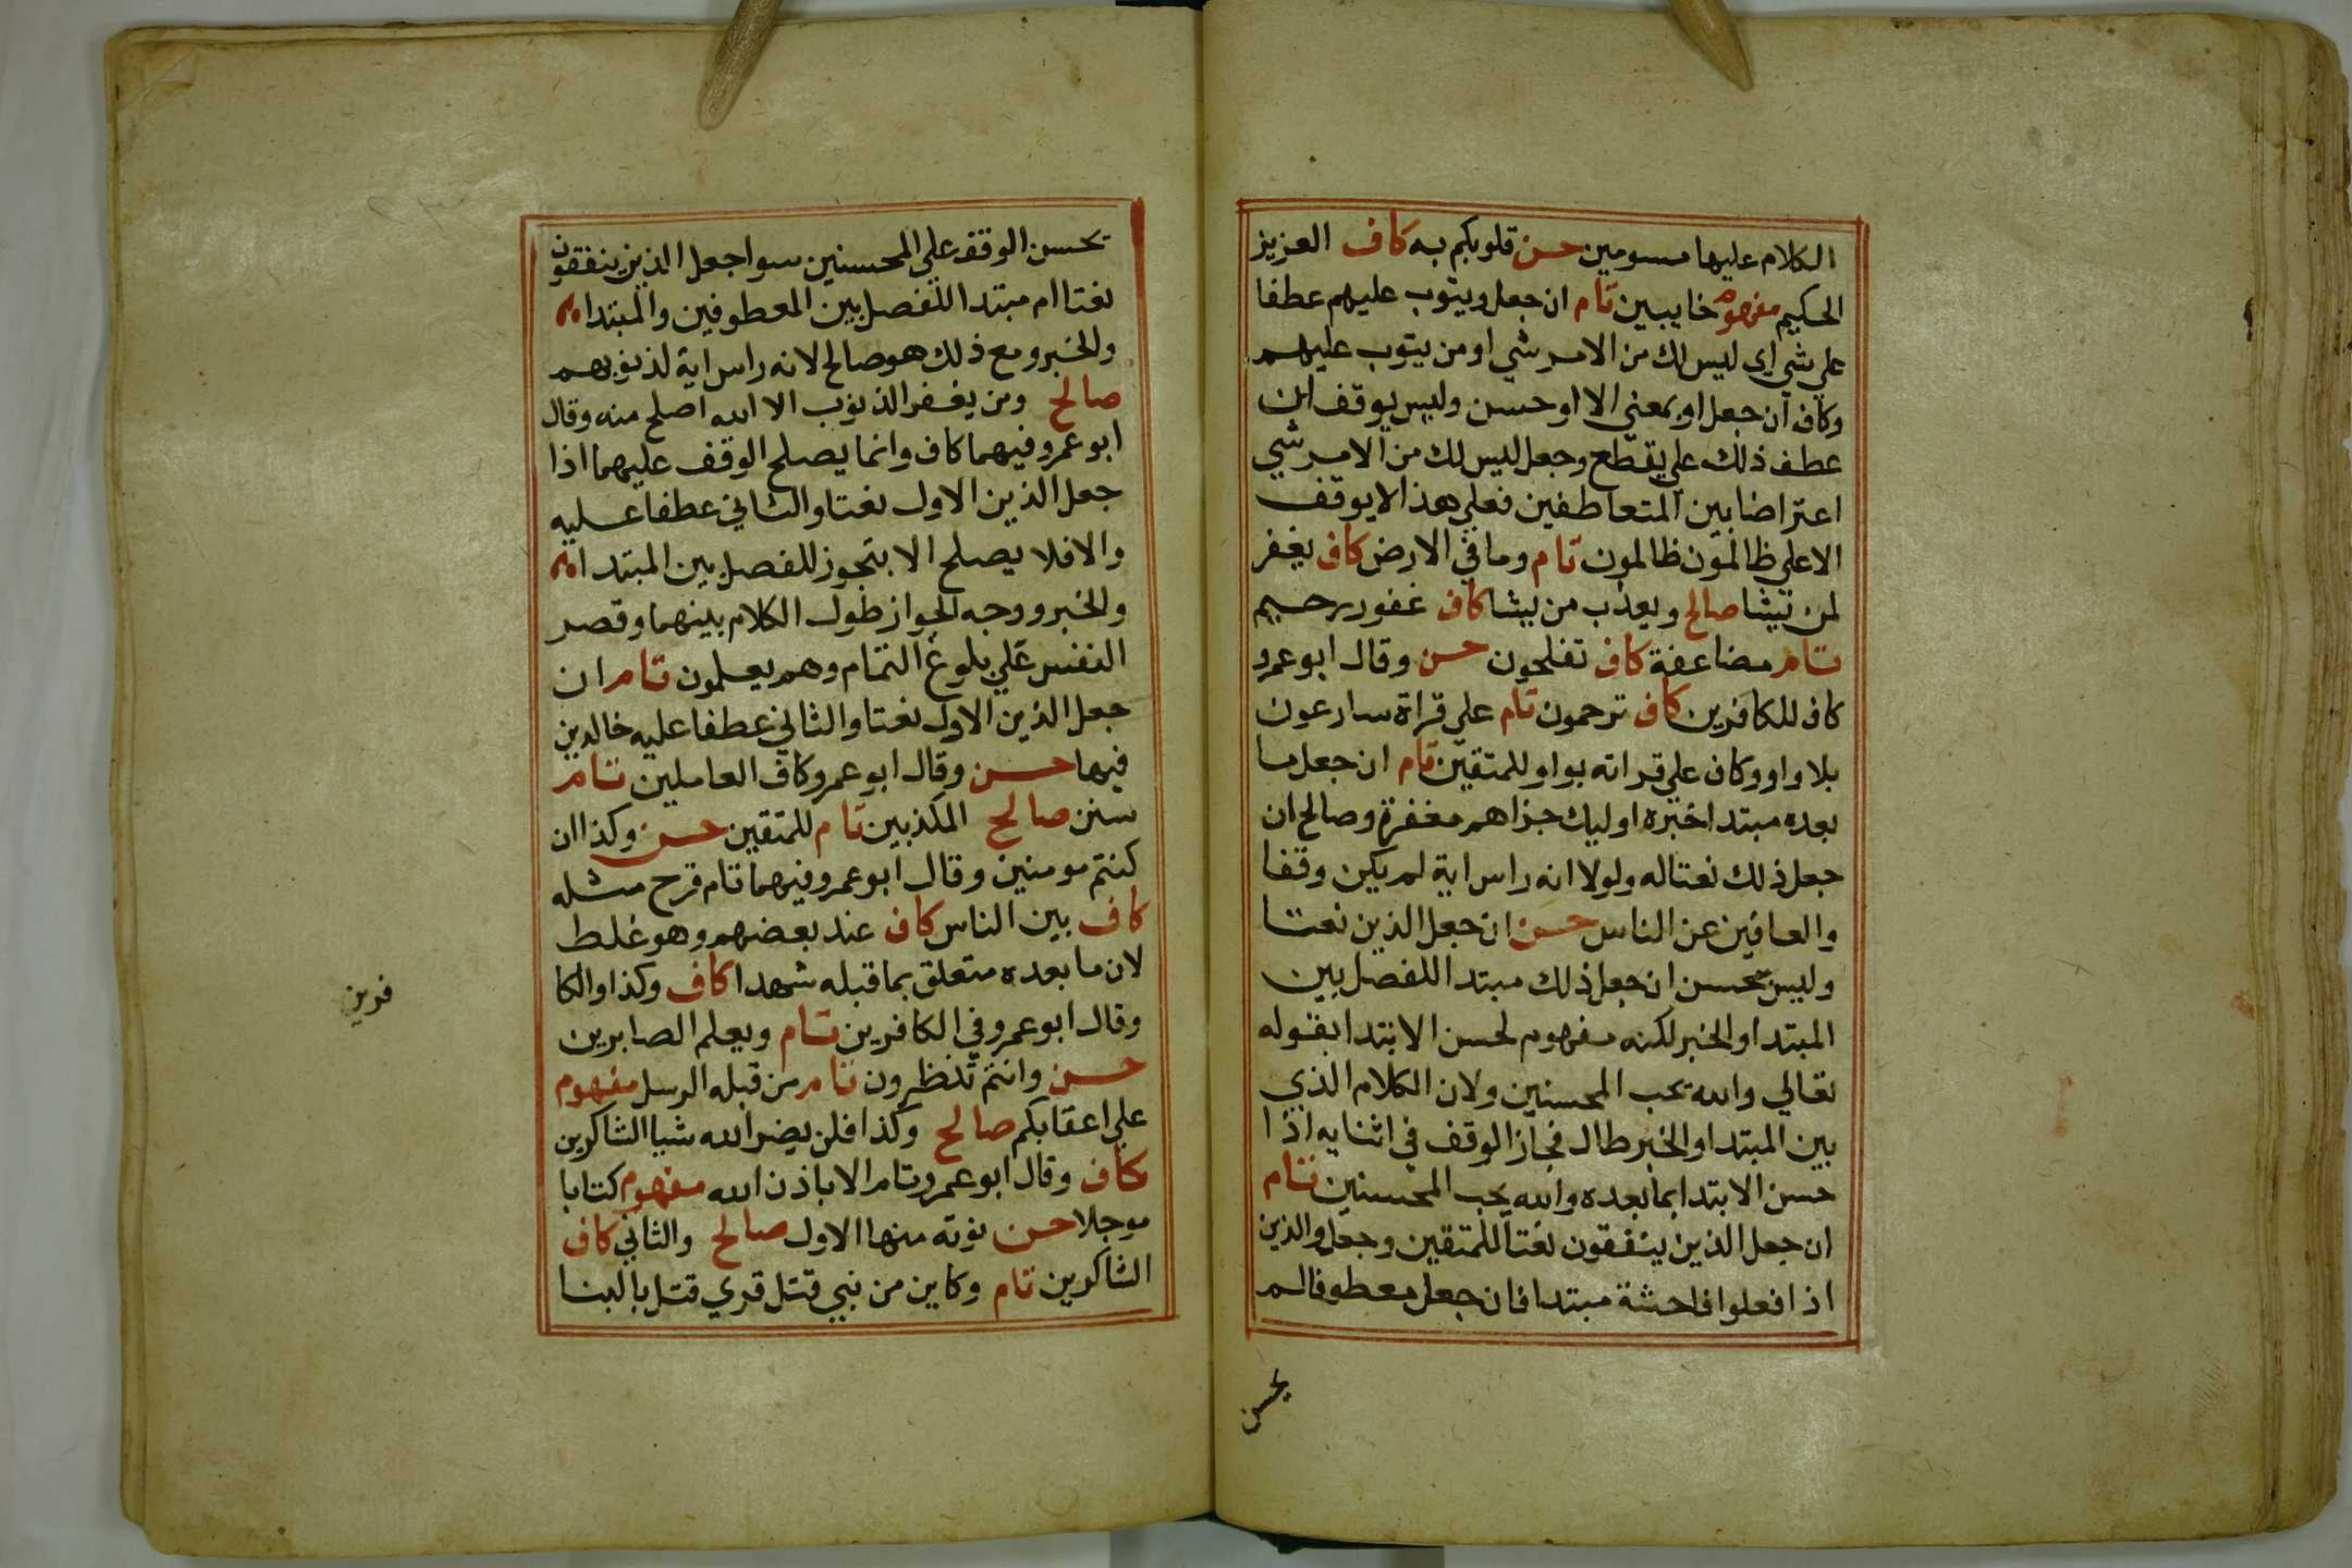 الكلام عليها مسومين حسن قلوبكم به كاف العزيز
الحكيم مفهوم خايبين تام ان جعل ويتوب عليهم عطفا
علي شي اي ليس لك من الامر شي او من يتوب عليهم
وكاف ان جعل او بمعني الا او حسن وليس بوقف ان
عطف ذلك علي يقطع وجعل ليس لك من الامر شي
اعتراضا بين المتعاطفين فعلي هذا لا يوقف
الا علي ظالمون ظالمون تام وما في الارض كاف يغفر
لمن يشا صالح ويعذب من يشا كاف غفور رحيم
تام مضاعفة كاف تفلحون حسن وقال ابو عمرو
كاف للكافرين كاف ترحمون تام علي قراة سارعون
بلا واو وكاف علي قراته بواو للمتقين تام ان جعل ما
بعده مبتدا خبره اوليك جزاهم مغفرة وصالح ان
جعل ذلك نعتا له ولولا انه راس اية لم يكن وقفا
والعافين عن الناس حسن ان جعل الذين نعتا
وليس بحسن ان جعل ذلك مبتدا للفصل بين
المبتدا والخبر لكنه مفهوم لحسن الابتدا بقوله
تعالي والله يحب المحسنين ولان الكلام الذي
بين المبتدا والخبر طال فجاز الوقف في اثنايه اذا
حسن الابتدا بما بعده والله يحب المحسنين تام
ان جعل الذين ينفقون نعتا للمتقين وجعل والذين
اذا فعلوا فاحشة مبتدا فان جعل معطوفا لم
يحسن
يحسن الوقف علي المحسنين سوا جعل الذين ينفقون
نعتا ام مبتدا للفصل بين المعطوفين والمبتدا
والخبر ومع ذلك هو صالح لانه راس اية لذنوبهم
صالح ومن يغفر الذنوب الا الله اصلح منه وقال
ابو عمرو فيهما كاف وانما يصلح الوقف عليهما اذا
جعل الذين الاول نعتا والثاني عطفا عليه
والا فلا يصلح الا بتجوز للفصل بين المبتدا
والخبر ووجه الجواز طول الكلام بينهما وقصر
النفس علي بلوغ التمام وهم يعلمون تام ان
جعل الذين الاول نعتا والثاني عطفا عليه خالدين
فيها حسن وقال ابو عمرو كاف العاملين تام
سنن صالح المكذبين تام للمتقين حسن وكذا ان
كنتم مومنين وقال ابو عمرو فيهما تام قرح مثله
كاف بين الناس كاف عند بعضهم وهو غلط
لان ما بعده متعلق بما قبله شهدا كاف وكذا والكا
فرين
وقال ابو عمرو في الكافرين تام ويعلم الصابرين
حسن وانتم تنظرون تام من قبله الرسل مفهوم
علي اعقابكم صالح وكذا فلن يضر الله شيا الشاكرين
كاف وقال ابو عمرو تام الا باذن الله مفهوم كتابا
موجلا حسن نوته منها الاول صالح والثاني كاف
الشاكرين تام وكاين من نبي قتل قري قتل بالبنا